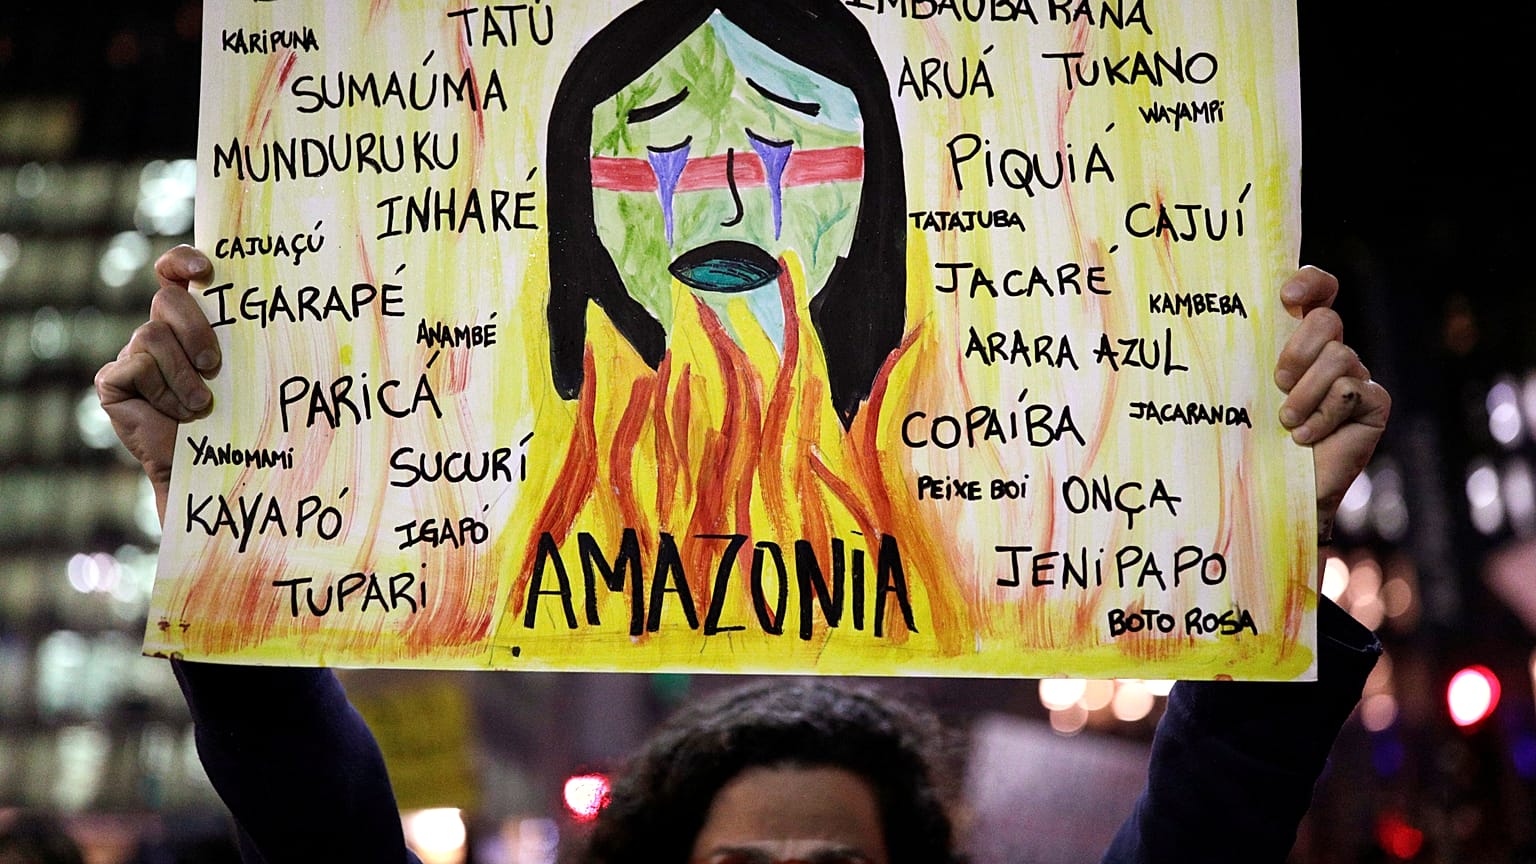 KARIPUNA
TATÚ
SUMAÚMA
MUNDURUKU
INHARÉ
CAJUAÇÚ
IGARAPÉ
ANAMBÉ
PARICÁ
YANOMAMI
SUCURÍ
KAYAPÓ
IGAPÓ
TUPARI
AMAZONIA
IMBAUBARANA
ARUÁ
TUKANO
WAYAMPI
PIQUIÁ
TATAJUBA
CAJUÍ
JACARÉ
KAMBEBA
ARARA AZUL
COPAÍBA
JACARANDA
PEIXE BOI
ONÇA
JENIPAPO
BOTO ROSA